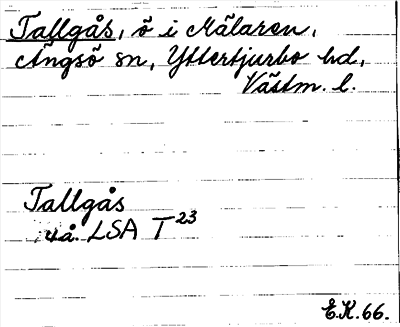 Tallgås, ö i Mälaren,
Ängsö sn, Yttertjurbo hd,
Västm. l.
Tallgås
u.å. LSA T 23
E.K. 66.